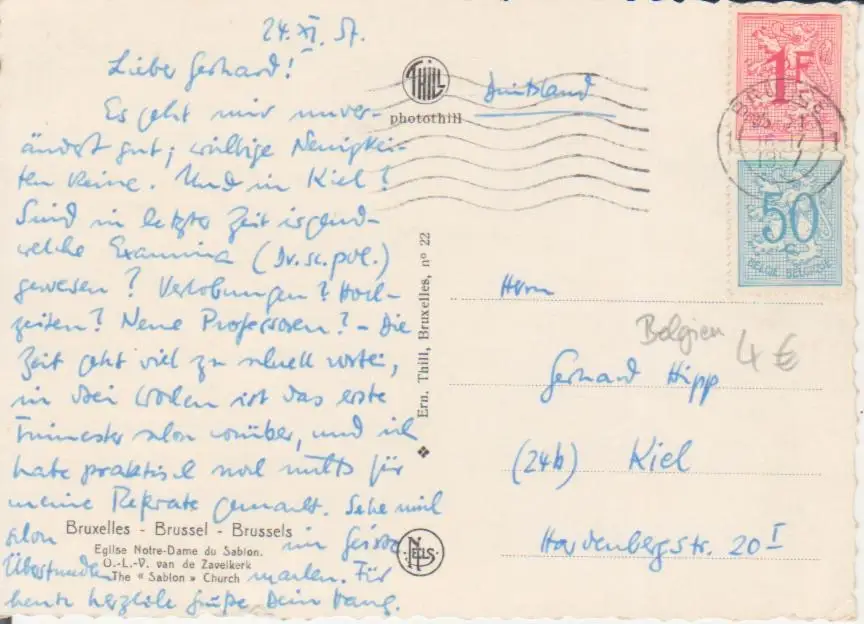 24. XI. 57.
Lieber Gerhard!
Es geht mir unver-
ändert gut; wichtige Neuigkei-
ten keine. Und in Kiel?
Sind in letzter Zeit irgend-
welche Examina (Dr. sc. pol.)
gewesen? Verlobungen? Hoch-
zeiten? Neue Professoren? – Die
Zeit geht viel zu schnell vorbei,
in drei Wochen ist das erste
Trimester schon vorüber, und ich
habe praktisch noch nichts für
meine Referate gemacht. Sehe mich
schon im Geiste
Überstunden machen. Für
heute herzliche Grüße Dein
Bruxelles - Brussel - Brussels
Eglise Notre-Dame du Sablon.
O.-L.-V. van de Zavelkerk
The « Sablon » Church
THILL
photothill
Ern. Thill, Bruxelles, n° 22
NELS
Deutschland
1F
50
C
BELGIE BELGIQUE
Herrn
Gerhard Hipp
(24b) Kiel
Hardenbergstr. 20 I
Belgien 4 €